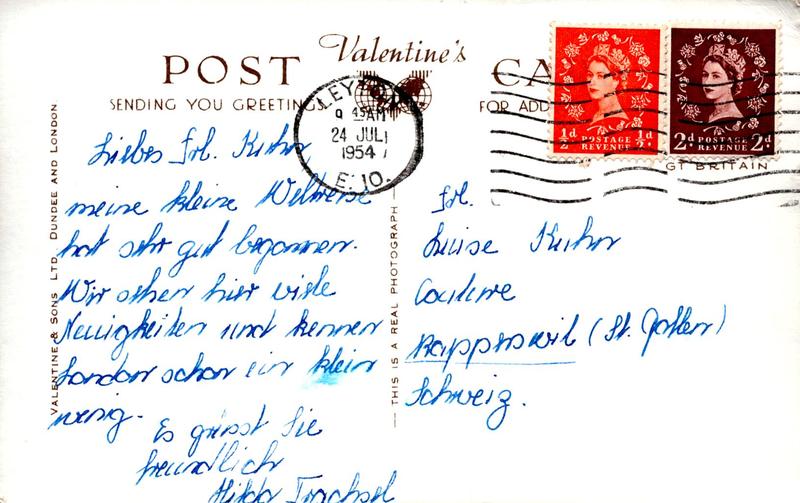 POST CA
Valentine's
SENDING YOU GREETIN FOR ADD
LEYTON
9 45 AM
24 JUL
1954
E. 10.
½d POSTAGE REVENUE ½d
2d POSTAGE REVENUE 2d
GT BRITAIN
VALENTINE & SONS LTD. DUNDEE AND LONDON
THIS IS A REAL PHOTOGRAPH
Liebes Frl. Kuhn,
meine kleine Weltreise
hat sehr gut begonnen.
Wir sehen hier viele
Neuigkeiten und kennen
London schon ein klein
wenig.
Es grüsst Sie
freundlich
Hilda Trachsel
Frl.
Luise Kuhn
Couture
Rapperswil (St. Gallen)
Schweiz.